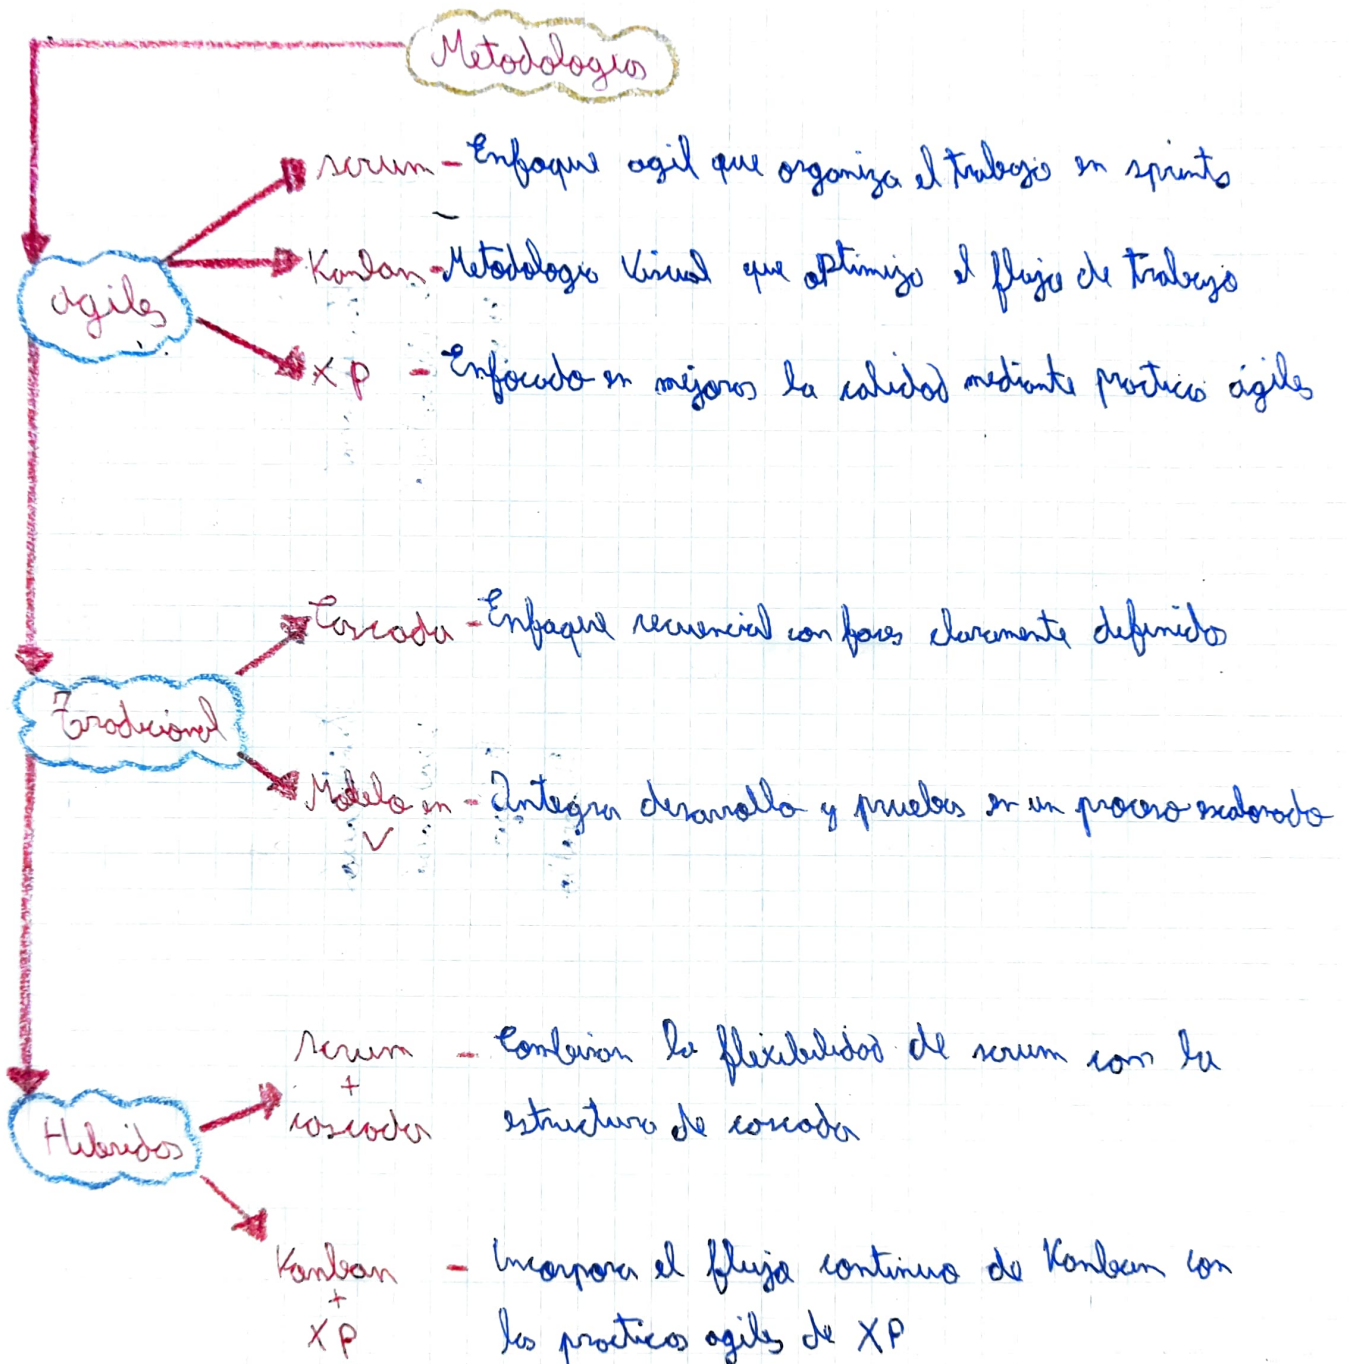 Metodologias
scrum - Enfoque agil que organiza el trabajo en sprints
Kanban - Metodologia Visual que optimiza el flujo de trabajo
agiles
XP - Enfocado en mejoras la calidad mediante practicas ágiles
Cascada - Enfoque secuencial con fases claramente definidas
Tradicional
Modelo en - Integra desarrollo y pruebas en un proceso escalonado
V
scrum - Combinan la flexibilidad de scrum con la
+
cascada estructura de cascada
Hibridos
Kanban - Incorpora el flujo continuo de Kanban con
+
XP las practicas agiles de XP